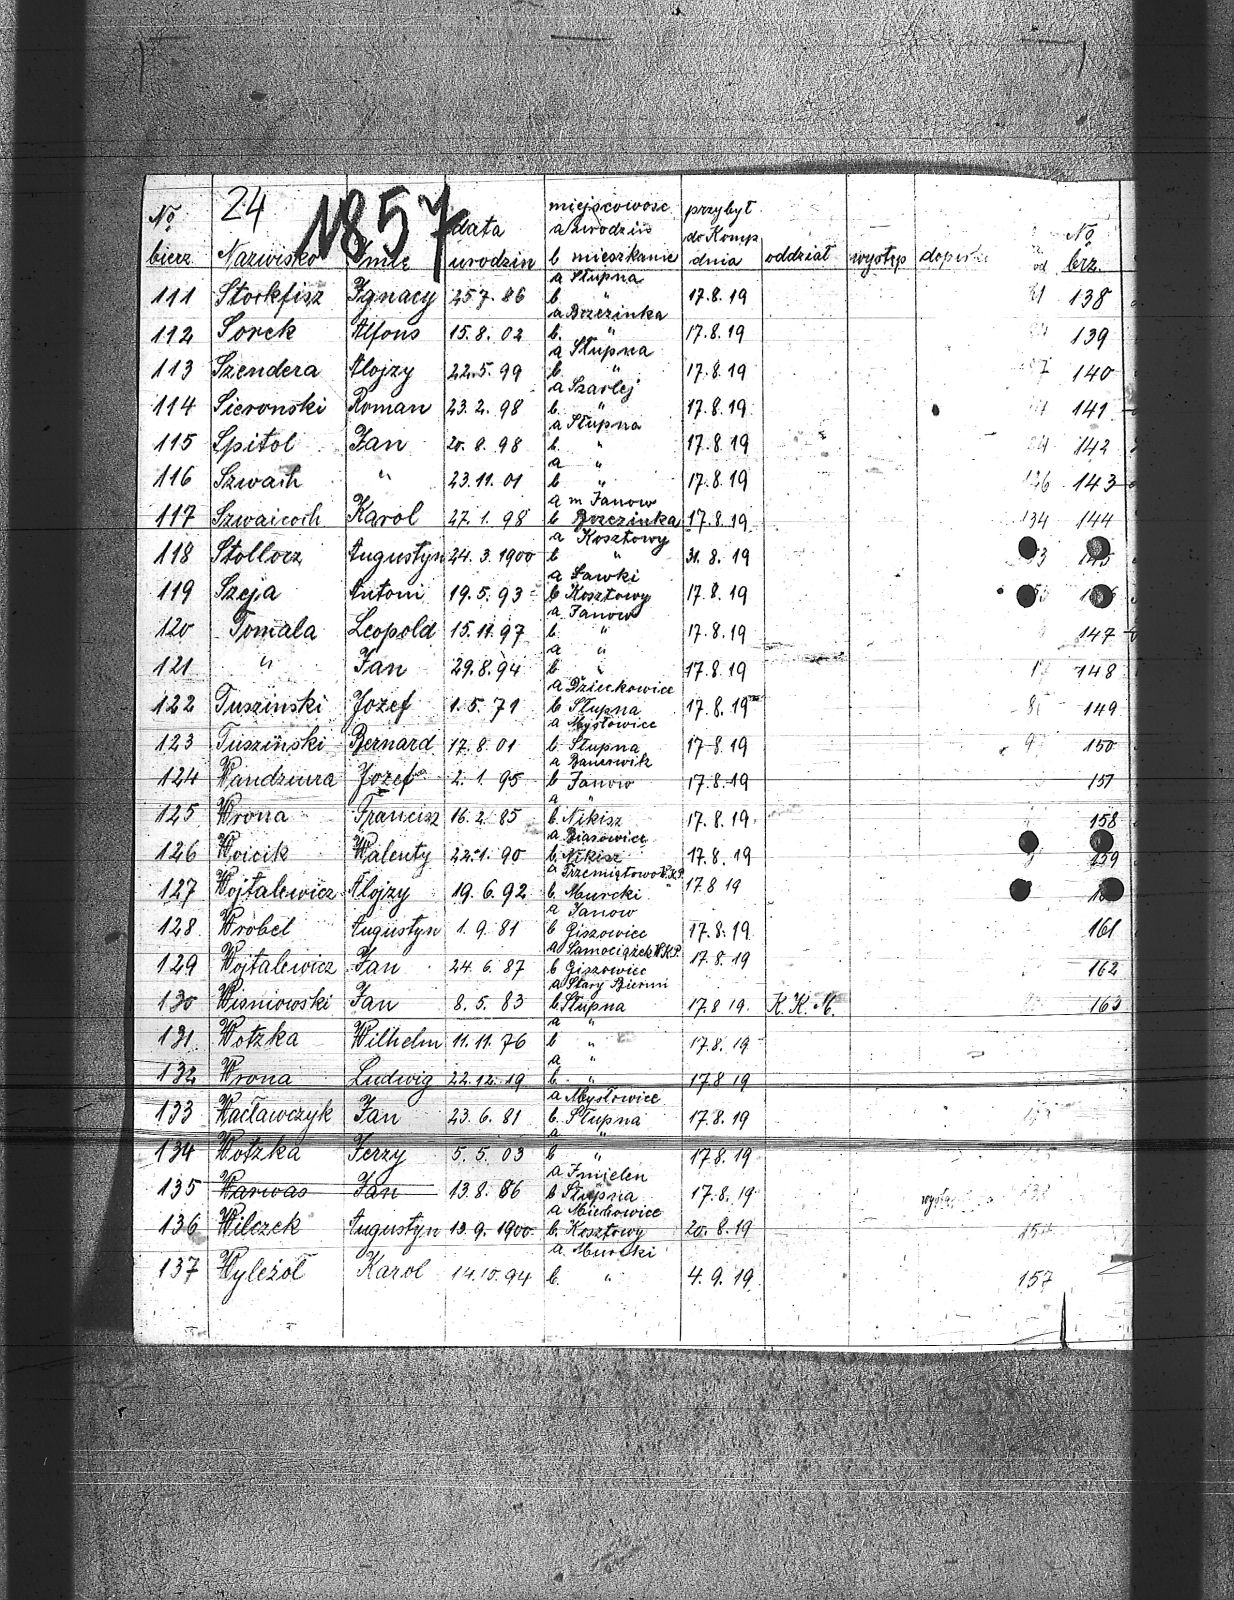 24 1857
No bierz Nazwisko Imię data urodzin miejscowosc a urodzin b mieszkanie przybył do Komp dnia oddział występ No brz.
111 Stockfisz Ignacy 25 7. 86 a Słupna b " 17.8.19 138
112 Sorek Alfons 15.8.02 a Brzezinka b. " 17.8.19 139
113 Szendera Alojzy 22.5.99 a Słupna b " 17.8.19 140
114 Sieronski Roman 23.2.98 a Szarlej b " 17.8.19 141
115 Spitol Jan 20.8.98 a Słupna b " 17.8.19 142
116 Szwach " 23.11.01 a " b " 17.8.19 143
117 Szwaicoch Karol 27.1.98 a m Janow b Brzezinka 17.8.19 134 144
118 Stollorz Augustyn 24.3.1900 a Kosztowy b " 31.8.19 145
119 Szeja Antoni 19.5.93 a Ławki b Kosztowy 17.8.19
120 Tomala Leopold 15.11.97 a Janow b " 17.8.19 147
121 " Jan 29.8.94 a " b " 17.8.19 148
122 Tuszinski Jozef 1.5.71 a Dzieckowice b Słupna 17.8.19 149
123 Tuszinski Bernard 17.8.01 a Mysłowice b Słupna 17.8.19 150
124 Wandziura Jozef 2.1.95 a b Janow 17.8.19 151
125 Wrona Francisz 16.2.85 a " b Nikisz 17.8.19 158
126 Woicik Walenty 22.1.90 a b Nikisz 17.8.19 159
127 Wojtalewicz Alojzy 19.6.92 a b Murcki 17 8 19
128 Wrobel Augustyn 1.9.81 a Janow b Giszowiec 17.8.19 161
129 Wojtalewicz Jan 24.6.87 a Samociążek W.K.P. b Giszowiec 17.8.19 162
130 Wisniowski Jan 8.5.83 a Stary Bierun b Słupna 17.8 19. K.K.M. 163
131 Wotzka Wilhelm 11.11.76 a " b " 17.8.19
132 Wrona Ludwig 22.12.19 a " b " 17.8 19
133 Wacławczyk Jan 23.6.81 a Mysłowice b Słupna 17.8.19
134 Wotzka Jerzy 5.5.03 a " b " 17.8.19
135 Warwas Jan 13.8.86 a Imielen b Słupna 17.8.19
136 Wilczek Augustyn 13.9.1900 a Miechowice b. Kosztowy 20.8.19
137 Wyleżoł Karol 14.10.94 a Murcki b. " 4.9.19. 157